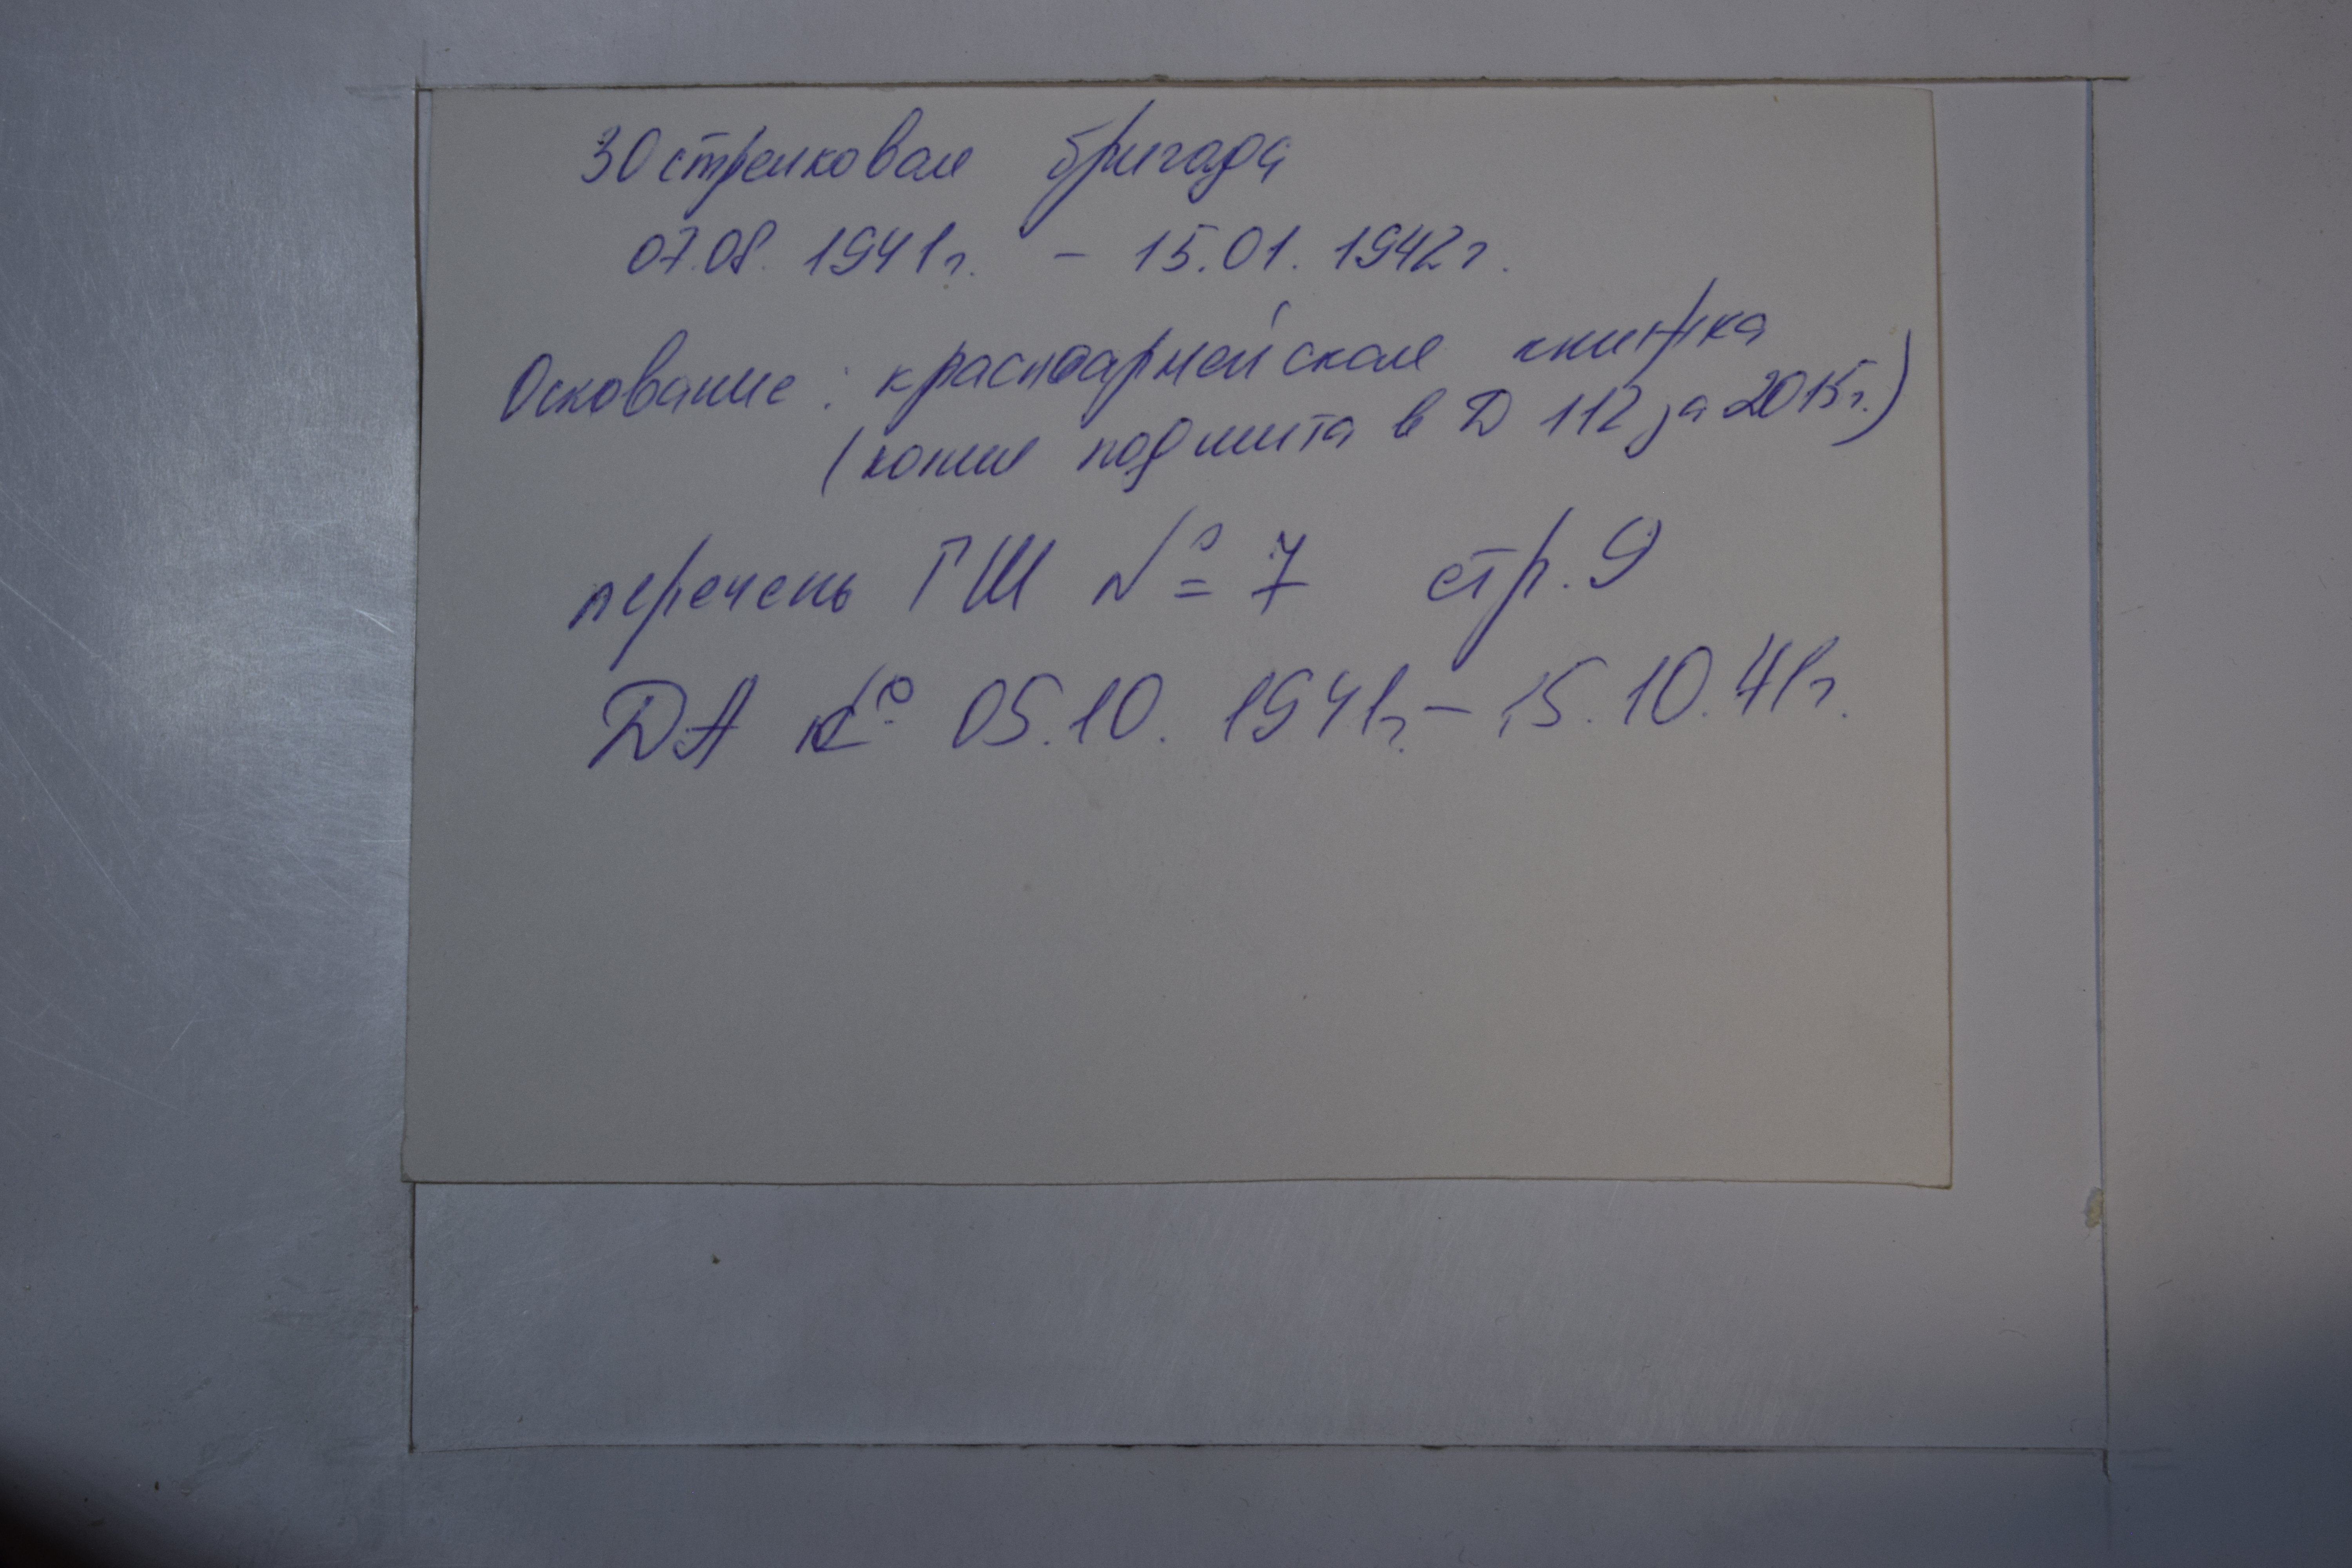 30 стрелковая бригада
07.08. 1941г. - 15.01. 1942г.
Основание: красноармейская книжка
(копия подшита в Д 112 за 2015г.)
перечень ГШ № 7 стр. 9
ДА 05.10. 1941г. - 15.10.41г.